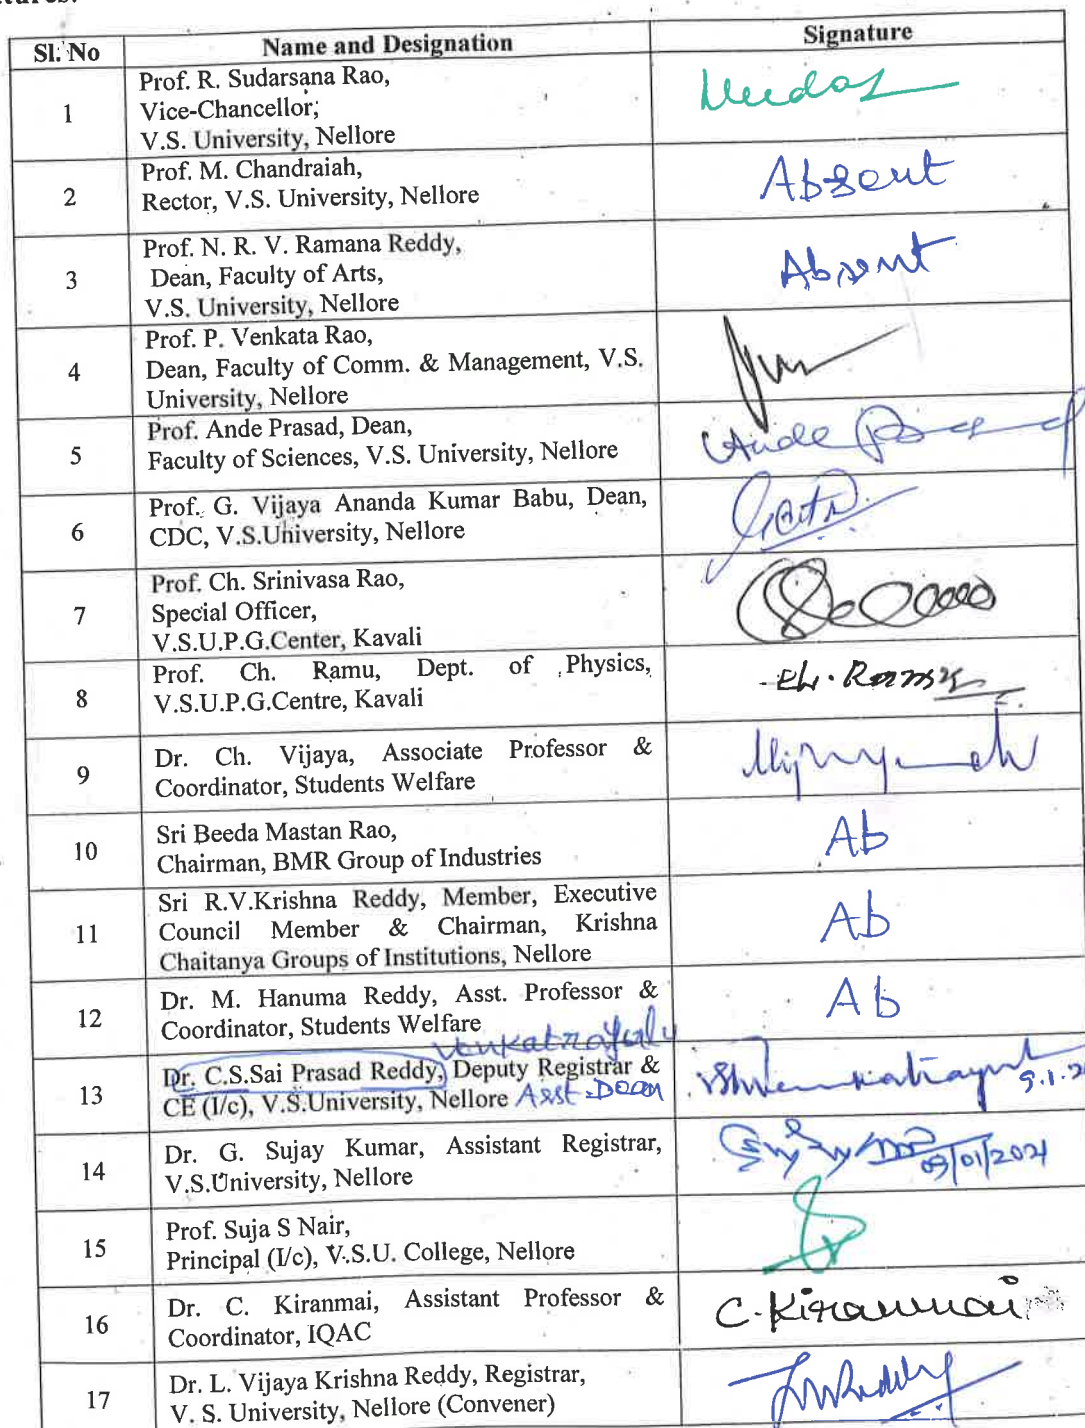 Sl. No Name and Designation Signature
1 Prof. R. Sudarsana Rao,
Vice-Chancellor,
V.S. University, Nellore
2 Prof. M. Chandraiah,
Rector, V.S. University, Nellore
Absent
3 Prof. N. R. V. Ramana Reddy,
Dean, Faculty of Arts,
V.S. University, Nellore
Absent
4 Prof. P. Venkata Rao,
Dean, Faculty of Comm. & Management, V.S.
University, Nellore
5 Prof. Ande Prasad, Dean,
Faculty of Sciences, V.S. University, Nellore
Ande Prasad
6 Prof. G. Vijaya Ananda Kumar Babu, Dean,
CDC, V.S.University, Nellore
7 Prof. Ch. Srinivasa Rao,
Special Officer,
V.S.U.P.G.Center, Kavali
8 Prof. Ch. Ramu, Dept. of Physics,
V.S.U.P.G.Centre, Kavali
Ch. Ramu
9 Dr. Ch. Vijaya, Associate Professor &
Coordinator, Students Welfare
10 Sri Beeda Mastan Rao,
Chairman, BMR Group of Industries
Ab
11 Sri R.V.Krishna Reddy, Member, Executive
Council Member & Chairman, Krishna
Chaitanya Groups of Institutions, Nellore
Ab
12 Dr. M. Hanuma Reddy, Asst. Professor &
Coordinator, Students Welfare
Ab
Venkatrayulu
13 Dr. C.S.Sai Prasad Reddy, Deputy Registrar &
CE (I/c), V.S.University, Nellore Asst. Dean
14 Dr. G. Sujay Kumar, Assistant Registrar,
V.S.University, Nellore
09/01/2021
15 Prof. Suja S Nair,
Principal (I/c), V.S.U. College, Nellore
16 Dr. C. Kiranmai, Assistant Professor &
Coordinator, IQAC
C. Kiranmai
17 Dr. L. Vijaya Krishna Reddy, Registrar,
V. S. University, Nellore (Convener)